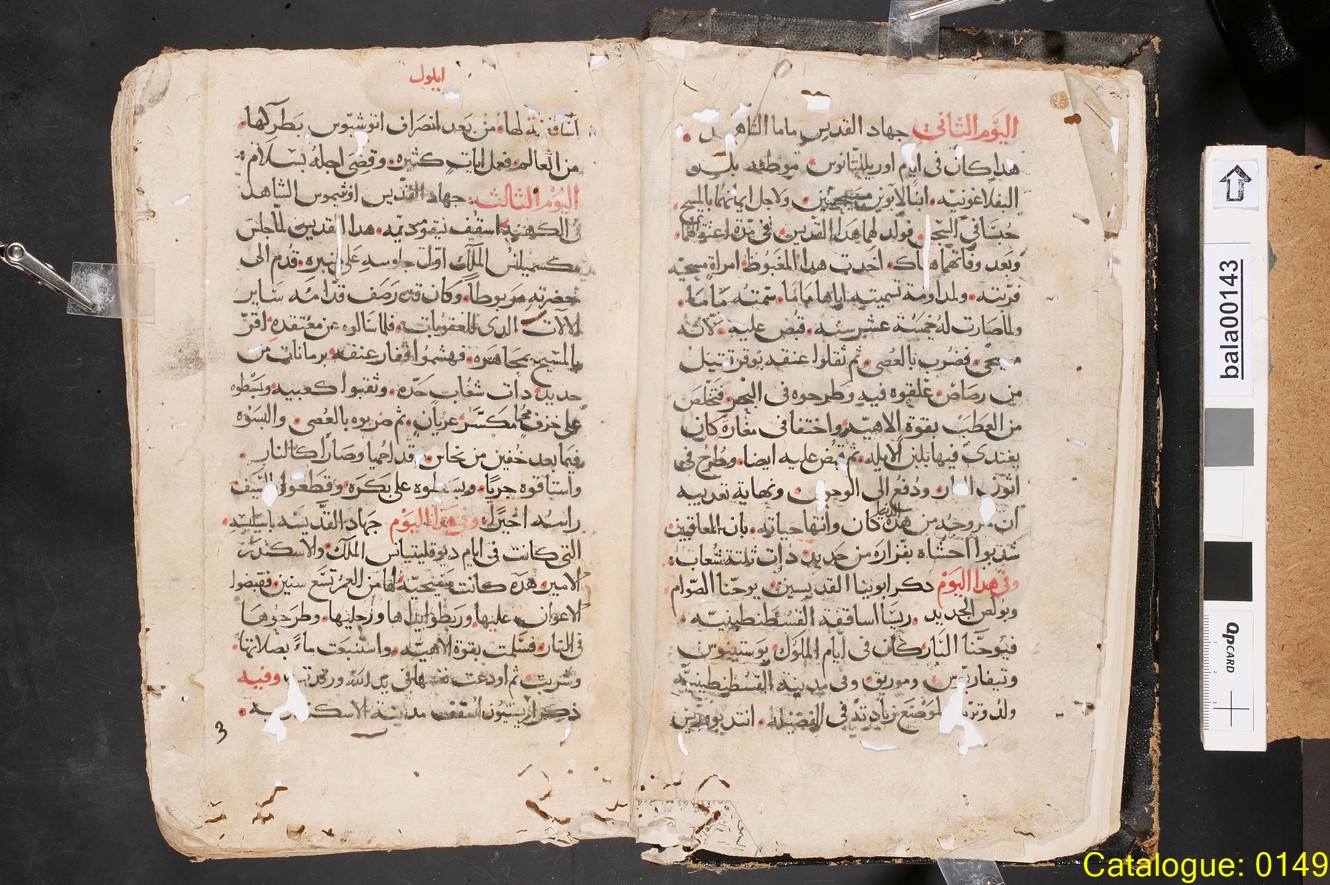 اليوم الثاني جهاد القديس ماما الشاهد
هدا كان في ايام اوريليانوس موطنه بلسو
الفلاغونيه ابنا لابوين مسيحيين ولاجل ايمانهما بالمسيح
حبسا في السجن فولد لهما هدا القديس في مده اعتقالهما
وبعد وفاتهما هناك اخدت هدا المغبوط امراه مسيحيه
قربته ولمداومة تسميته اياها ماما سمته ماما
ولما صارت له خمسة عشر سنه قبض عليه لانه
مسيحي فضرب بالعصي ثم ثقلوا عنقه بوقر تقيل
من رصاص علقوه فيه وطرحوه في البحر فتخلص
من العطب بقوة الاهيه واختفا في مغاره كان
يغتدي فيها بلبن الايله ثم قبض عليه ايضا وطرح في
اتون النار ودفع الى الوحوش ونهاية تعديبه
ان من هده كان وانقا حياته بان المعاقبين
شدبوا احشاه بقراره من حديد دات تلتة شعاب
وفي هدا اليوم دكر ابوينا القديسين يوحنا الصوام
وبولص الجديد ريسا اساقفة القسطنطينيه
فيوحنا كان في ايام الملوك يوستينوس
وتيفاريوس وموريق وفي مدينة القسطنطينيه
ولد وتربى لموضع زيادته في الفضيله انتدبوه ريس
ايلول
اساقفة لها من بعد انصراف انوشيوس بطركها
من العالم فعل ايات كثيره وقضى اجله بسلام
اليوم الثالث جهاد القديس انثيموس الشاهد
في الكهنه اسقف نيقوموديه هدا القديس لما جلس
مكسميانس الملك اول جلوسه على منبره قدم الى
حضرته مربوطا وكان قد رصف قدامه ساير
الالات الدي للعقوبات فلما سالوه عن معتقده اقر
بالمسيح بمجاهره فهشموا فقار عنقه برمانات من
حديد دات شعاب حده وثقبوا كعبيه وبسطوه
على خزف مكسر عريان ثم ضربوه بالعصي والبسوه
فيما بعد خفين من نحاس قد احميا وصارا كالنار
واستاقوه جريا وبسطوه على بكره وقطعوا بالسيف
راسه اخيرا وفي هدا اليوم جهاد القديسه باسيليسه
التي كانت في ايام ديوقليتيانس الملك والاسكندر
الامير هده كانت مسيحيه لها من العمر تسع سنين فقبضوا
الاعوان عليها وربطوا يداها ورجليها وطرحوها
في النار فسلمت بقوة الاهيه واستنبعت ماء بصلاتها
وشربت ثم اودعت نفسها في يد الله ورقدت وفيه
دكر ارسيتون اسقف مدينة الاسكندريه
3
bala00143
QPCARD
Catalogue: 0149